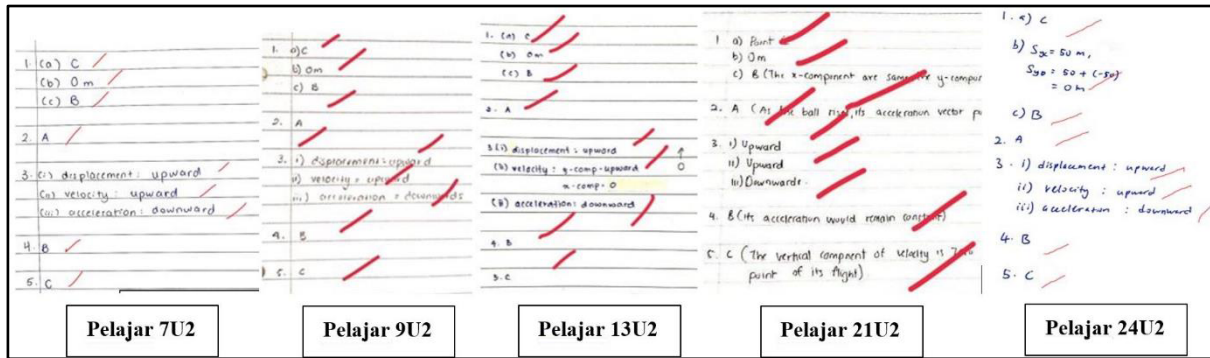 1. (a) C
(b) 0 m
(c) B
2. A
3. (i) displacement : upward
(ii) velocity : upward
(iii) acceleration : downward
4. B
5. C
Pelajar 7U2
1. a) C
b) 0m
c) B
2. A
3. i) displacement : upward
ii) velocity : upward
iii) acceleration : downwards
4. B
5. C
Pelajar 9U2
1. (a) C
(b) 0m
(c) B
2. A
3. (i) displacement : upward
(ii) velocity : y-comp - upward
x-comp - 0
acceleration : downward
4. B
5. C
Pelajar 13U2
1 a) Point
b) 0m
c) B (The x-component are same y-compon
2. A (As the ball rises, its acceleration vector po
3. i) Upward
ii) Upward
iii) Downwards.
4. B (its acceleration would remain constant)
5. C (The vertical component of velocity is
point of its flight)
Pelajar 21U2
1. a) C
b) Sx = 50 m,
= 50 + (-50)
= 0 m
c) B
2. A
3. i) displacement : upward
ii) velocity : upward
iii) acceleration : downward
4. B
5. C
Pelajar 24U2